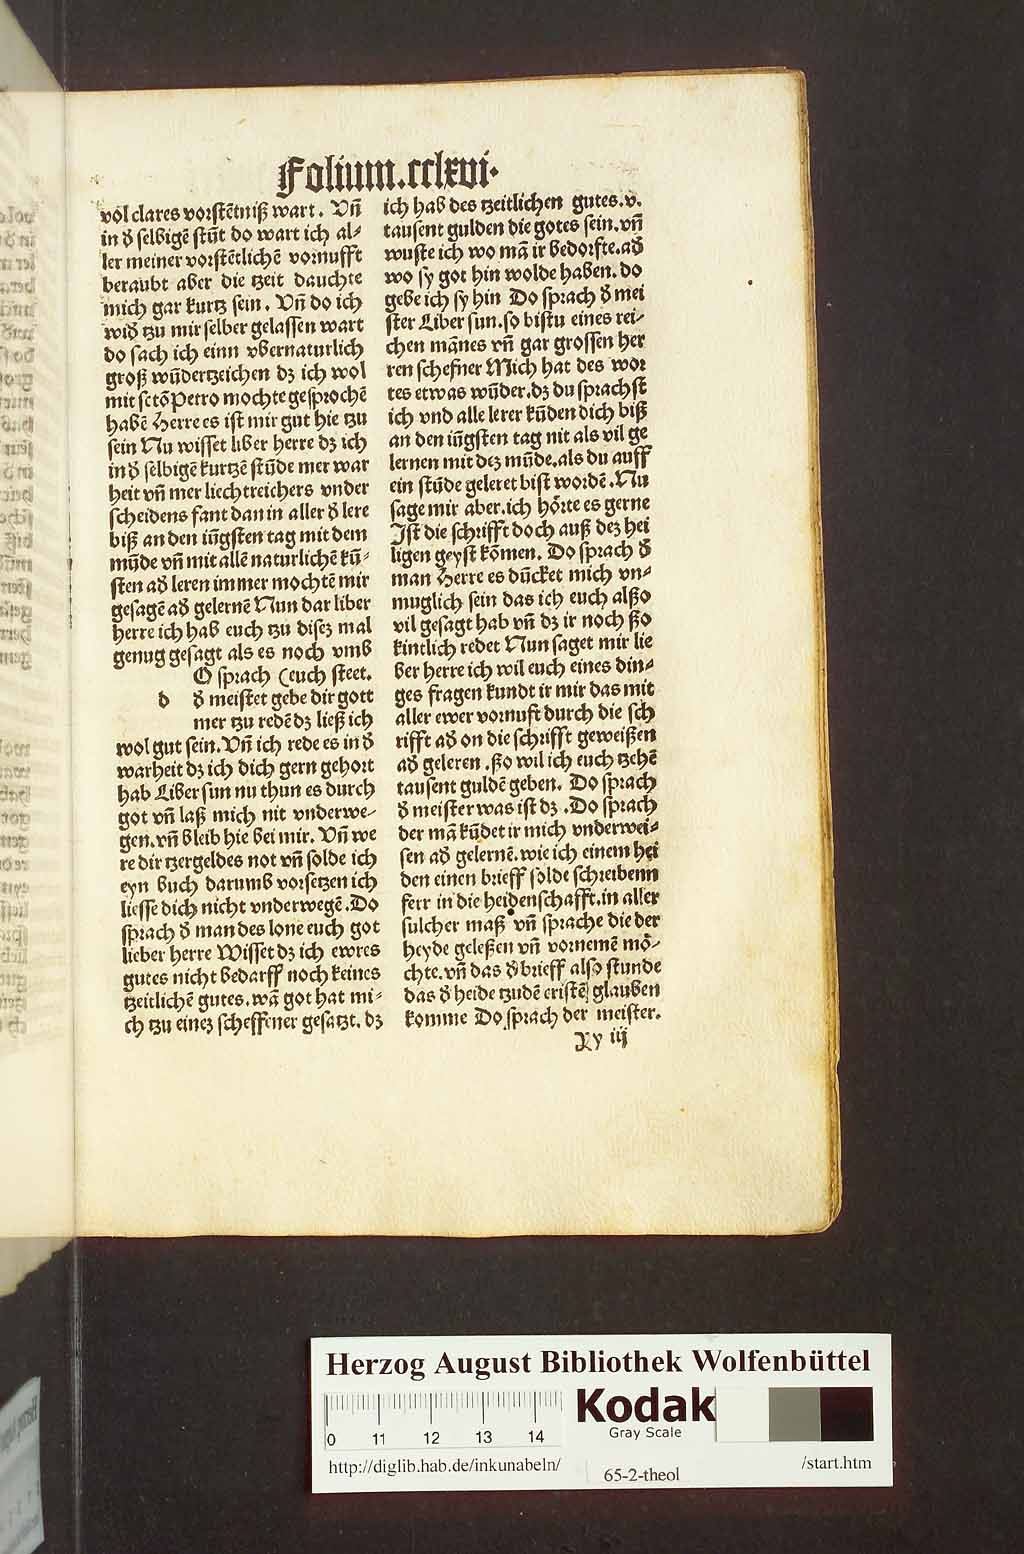 Folium.cclxvi.
vol clares vorstētniß wart. Vn̄
in d̕ selbigē stūt do wart ich al⸗
ler meiner vorstētlichē vornufft
beraubt aber die tzeit dauchte
mich gar kurtz sein. Vn̄ do ich
wid̕ tzu mir selber gelassen wart
do sach ich einn vbernaturlich
groß wūdertzeichen dz ich wol
mit sctō Petro mochte gesprochē
habē Herre es ist mir gut hie tzu
sein Nu wisset liber herre dz ich
in d̕ selbigē kurtzē stūde mer war
heit vn̄ mer liechtreichers vnder
scheidens fant dan in aller d̕ lere
biß an den iūgsten tag mit dem
mūde vn̄ mit allē naturlichē kū⸗
sten ad̕ leren immer mochtē mir
gesagē ad̕ gelernē Nun dar liber
herre ich hab euch tzu disez mal
genug gesagt als es noch vmb
O sprach (euch steet.
d d̕ meistet gebe dir gott
mer tzu redē dz ließ ich
wol gut sein. Vn̄ ich rede es in d̕
warheit dz ich dich gern gehort
hab Liber sun nu thun es durch
got vn̄ laß mich nit vnderwe⸗
gen. vn̄ bleib hie bei mir. Vn̄ we
re dir tzergeldes not vn̄ solde ich
eyn buch darumb vorsetzen ich
liesse dich nicht vnderwegē. Do
sprach d̕ man des lone euch got
lieber herre Wisset dz ich ewres
gutes nicht bedarff noch keines
tzeitlichē gutes. wā got hat mi⸗
ch tzu einez scheffener gesatzt. dz
ich hab des tzeitlichen gutes. v.
tausent gulden die gotes sein. vn̄
wuste ich wo mā ir bedorfte. ad̕
wo sy got hin wolde haben. do
gebe ich sy hin Do sprach d̕ mei
ster Liber sun. so bistu eines rei⸗
chen mānes vn̄ gar grossen her
ren schefner Mich hat des wor
tes etwas wūder. dz du sprachst
ich vnd alle lerer kūden dich biß
an den iūgsten tag nit als vil ge
lernen mit dez mūde. als du auff
ein stūde geleret bist wordē. Nu
sage mir aber. ich hórte es gerne
Ist die schrifft doch auß dez hei
ligen geyst kōmen. Do sprach d̕
man Herre es dūcket mich vn⸗
muglich sein das ich euch alßo
vil gesagt hab vn̄ dz ir noch ßo
kintlich redet Nun saget mir lie
ber herre ich wil euch eines din⸗
ges fragen kundt ir mir das mit
aller ewer vornuft durch die sch
rifft ad̕ on die schrifft geweißen
ad̕ geleren. ßo wil ich euch tzehē
tausent guldē geben. Do sprach
d̕ meister was ist dz. Do sprach
der mā kūdet ir mich vnderwei⸗
sen ad̕ gelernē. wie ich einem hei
den einen brieff solde schreibenn
ferr in die heidenschafft. in aller
sulcher maß vn̄ sprache die der
heyde geleßen vn̄ vornemē mö⸗
chte. vn̄ das d̕ brieff also stunde
das d̕ heide tzudē cristē glauben
komme Do sprach der meister.
Xy iij
Herzog August Bibliothek Wolfenbüttel
Kodak
Gray Scale
0 11 12 13 14
http://diglib.hab.de/inkunabeln/
65-2-theol
/start.htm